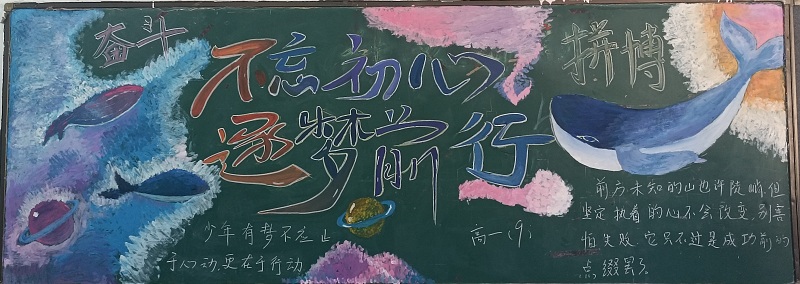 奋斗
不忘初心
逐梦前行
拼博
少年有梦不应止
于心动,更在于行动
高一(9)
前方未知的山也许陡峭,但
坚定执着的心不会改变,别害
怕失败.它只不过是成功前的
点缀罢了